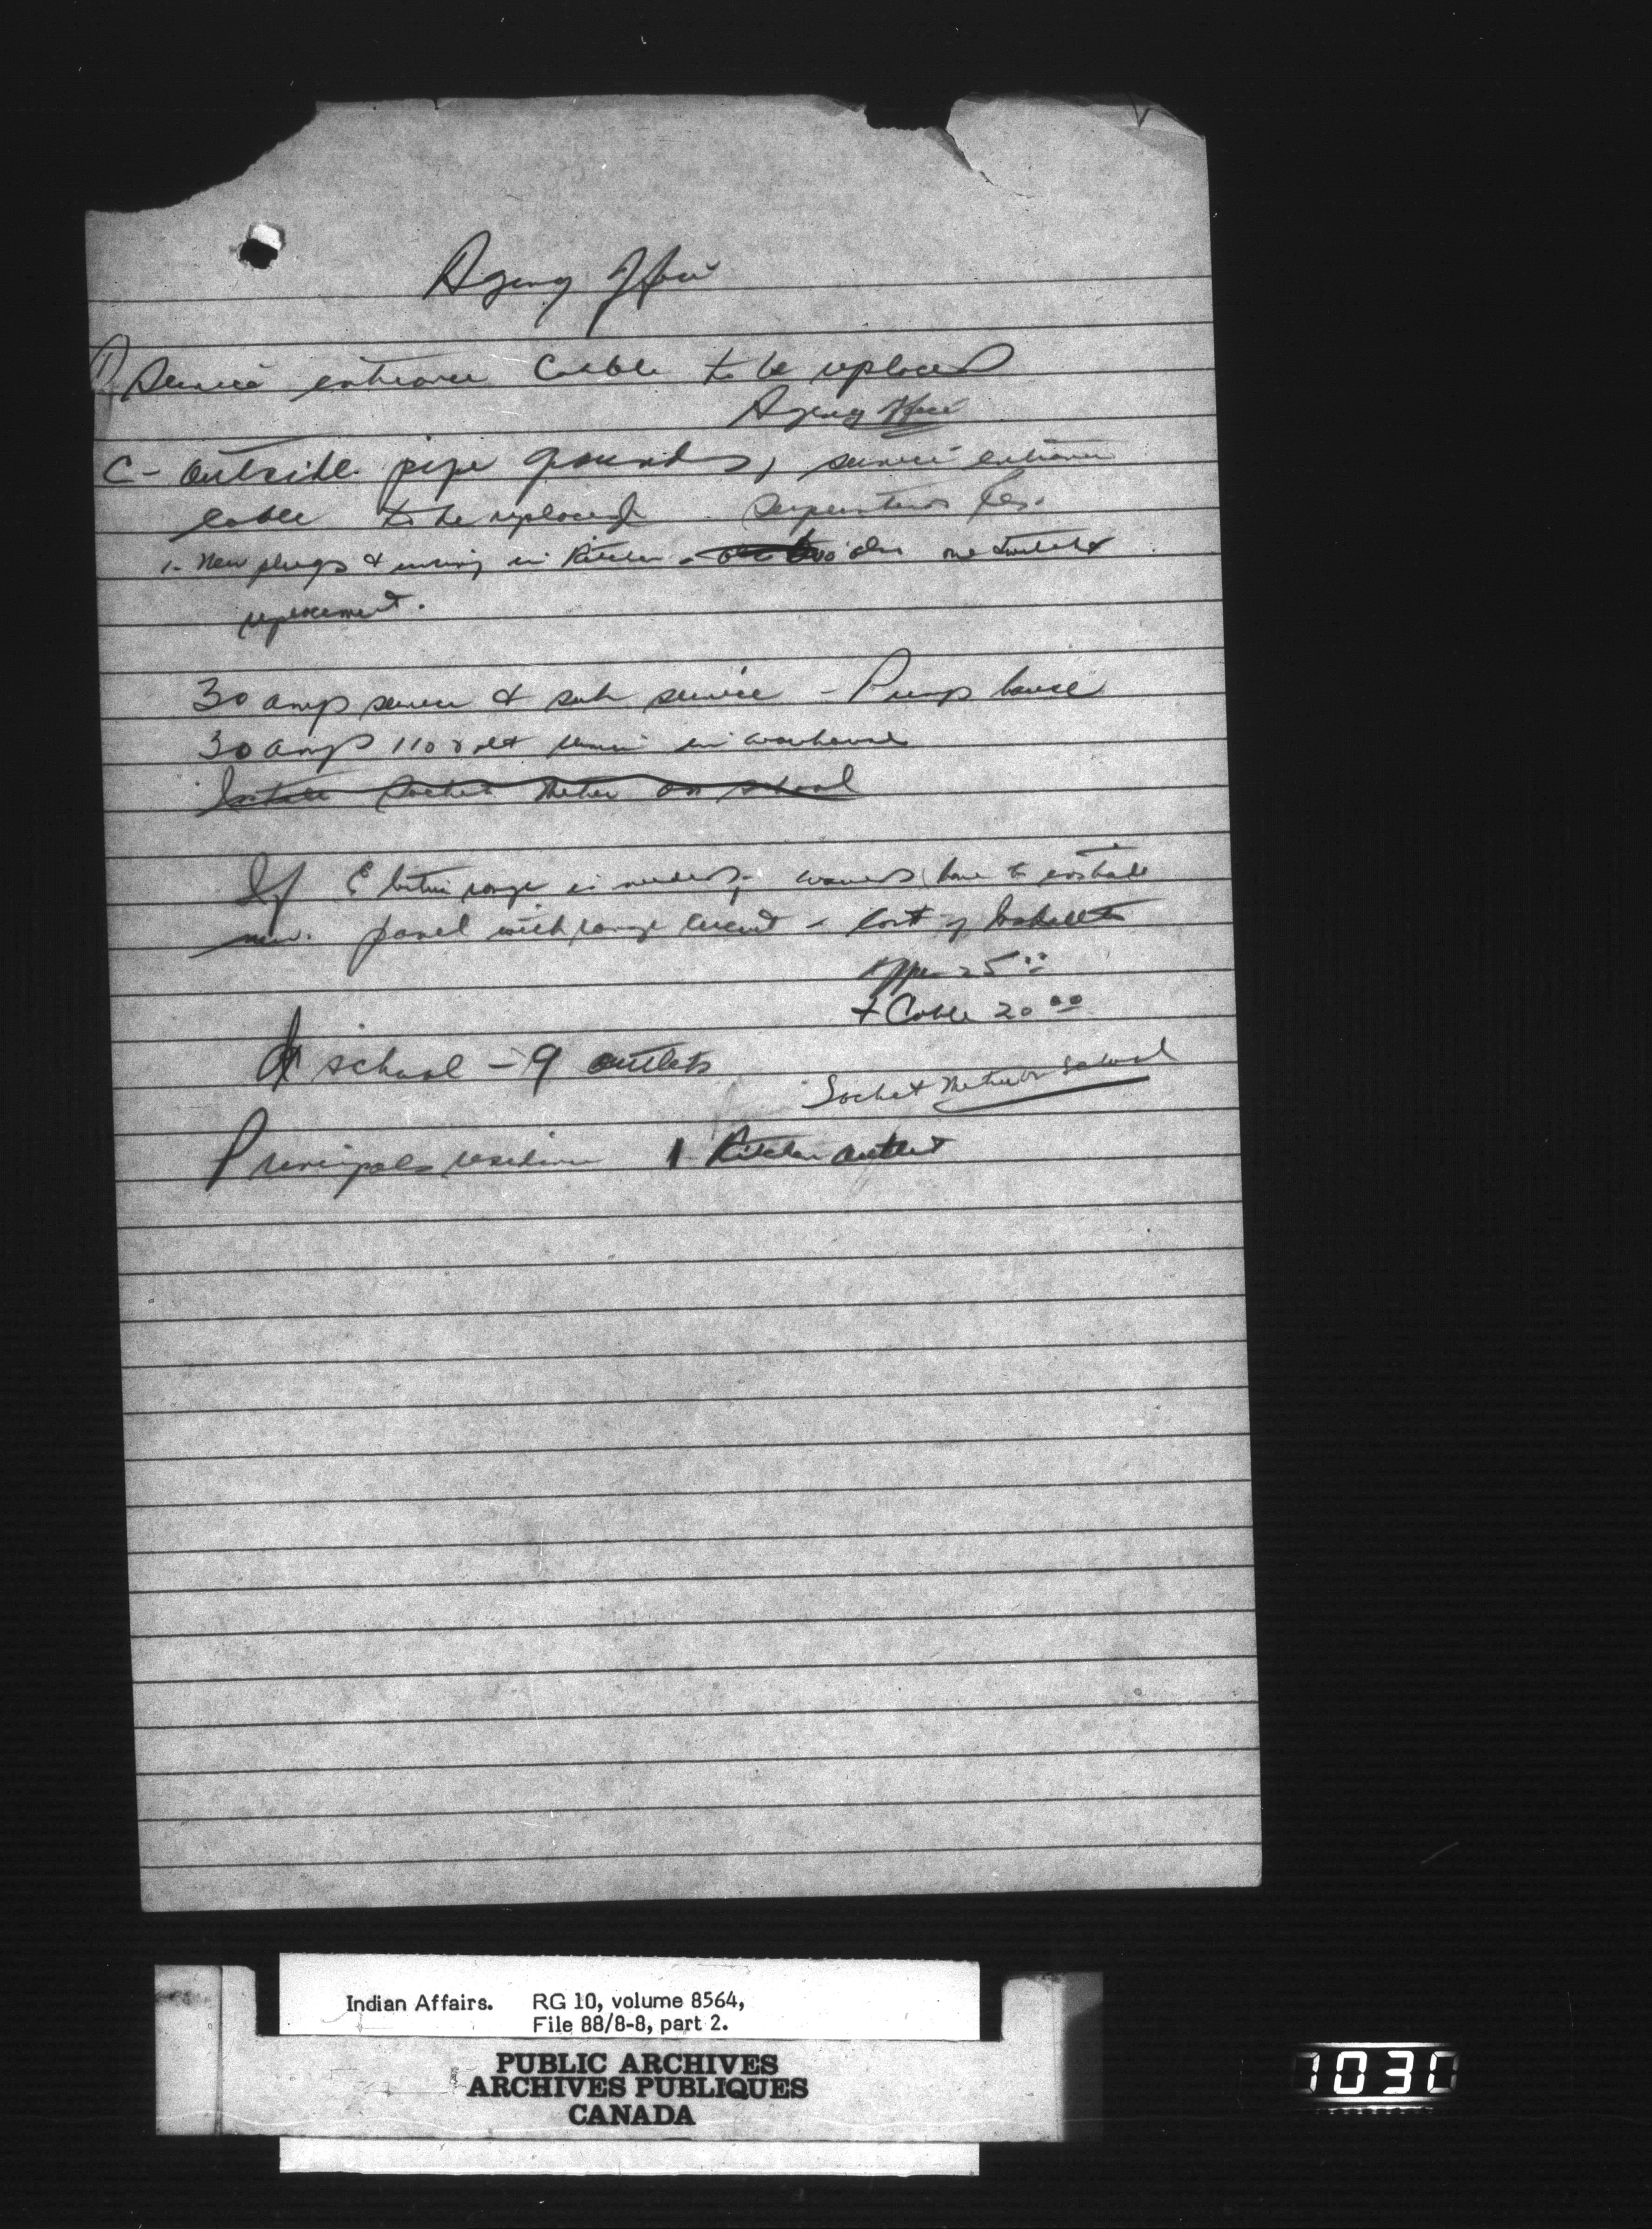 Agency Office
1) Service entrance Cable to be replaced
Agency Office
C- outside pipe grounds, service entrance
cable to be replaced Superintendents Res.
1- New plugs & wiring in Kitchen - also one switch
replacement.
30 amp service & sub service - Pump house
30 amp 110 volt service in warehouse
Install Socket Meter on School
If Electric range is needed, would have to install
new panel with range circuit - Cost of
Appr 25 00
+ Cable 20 00
school - 9 outlets
Socket Meter on School
Principals residence 1 Kitchen outlet
Indian Affairs. RG 10, volume 8564,
File 88/8-8, part 2.
PUBLIC ARCHIVES
ARCHIVES PUBLIQUES
CANADA
1030